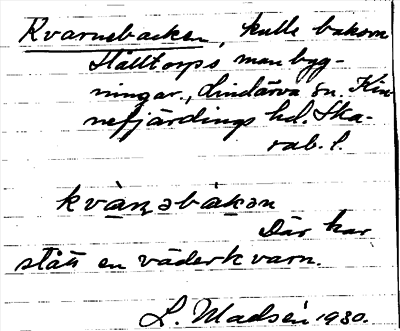 Kvarnebacken, kulle bakom
Ståltorps manbyg-
ningar., Lindärva sn. Kin-
nefjärdings hd. Ska-
rab. l.
kvàṇəbàkən
Där har
stått en väderkvarn.
L. Madsén 1930.